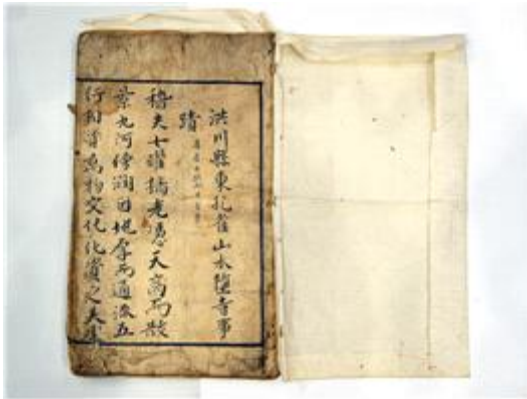 洪川縣東孔雀山水墮寺事
蹟
稽夫七曜摛光憑天高而散
葉九河傳潤因地厚而通派五
行相資萬物交化化資之夫